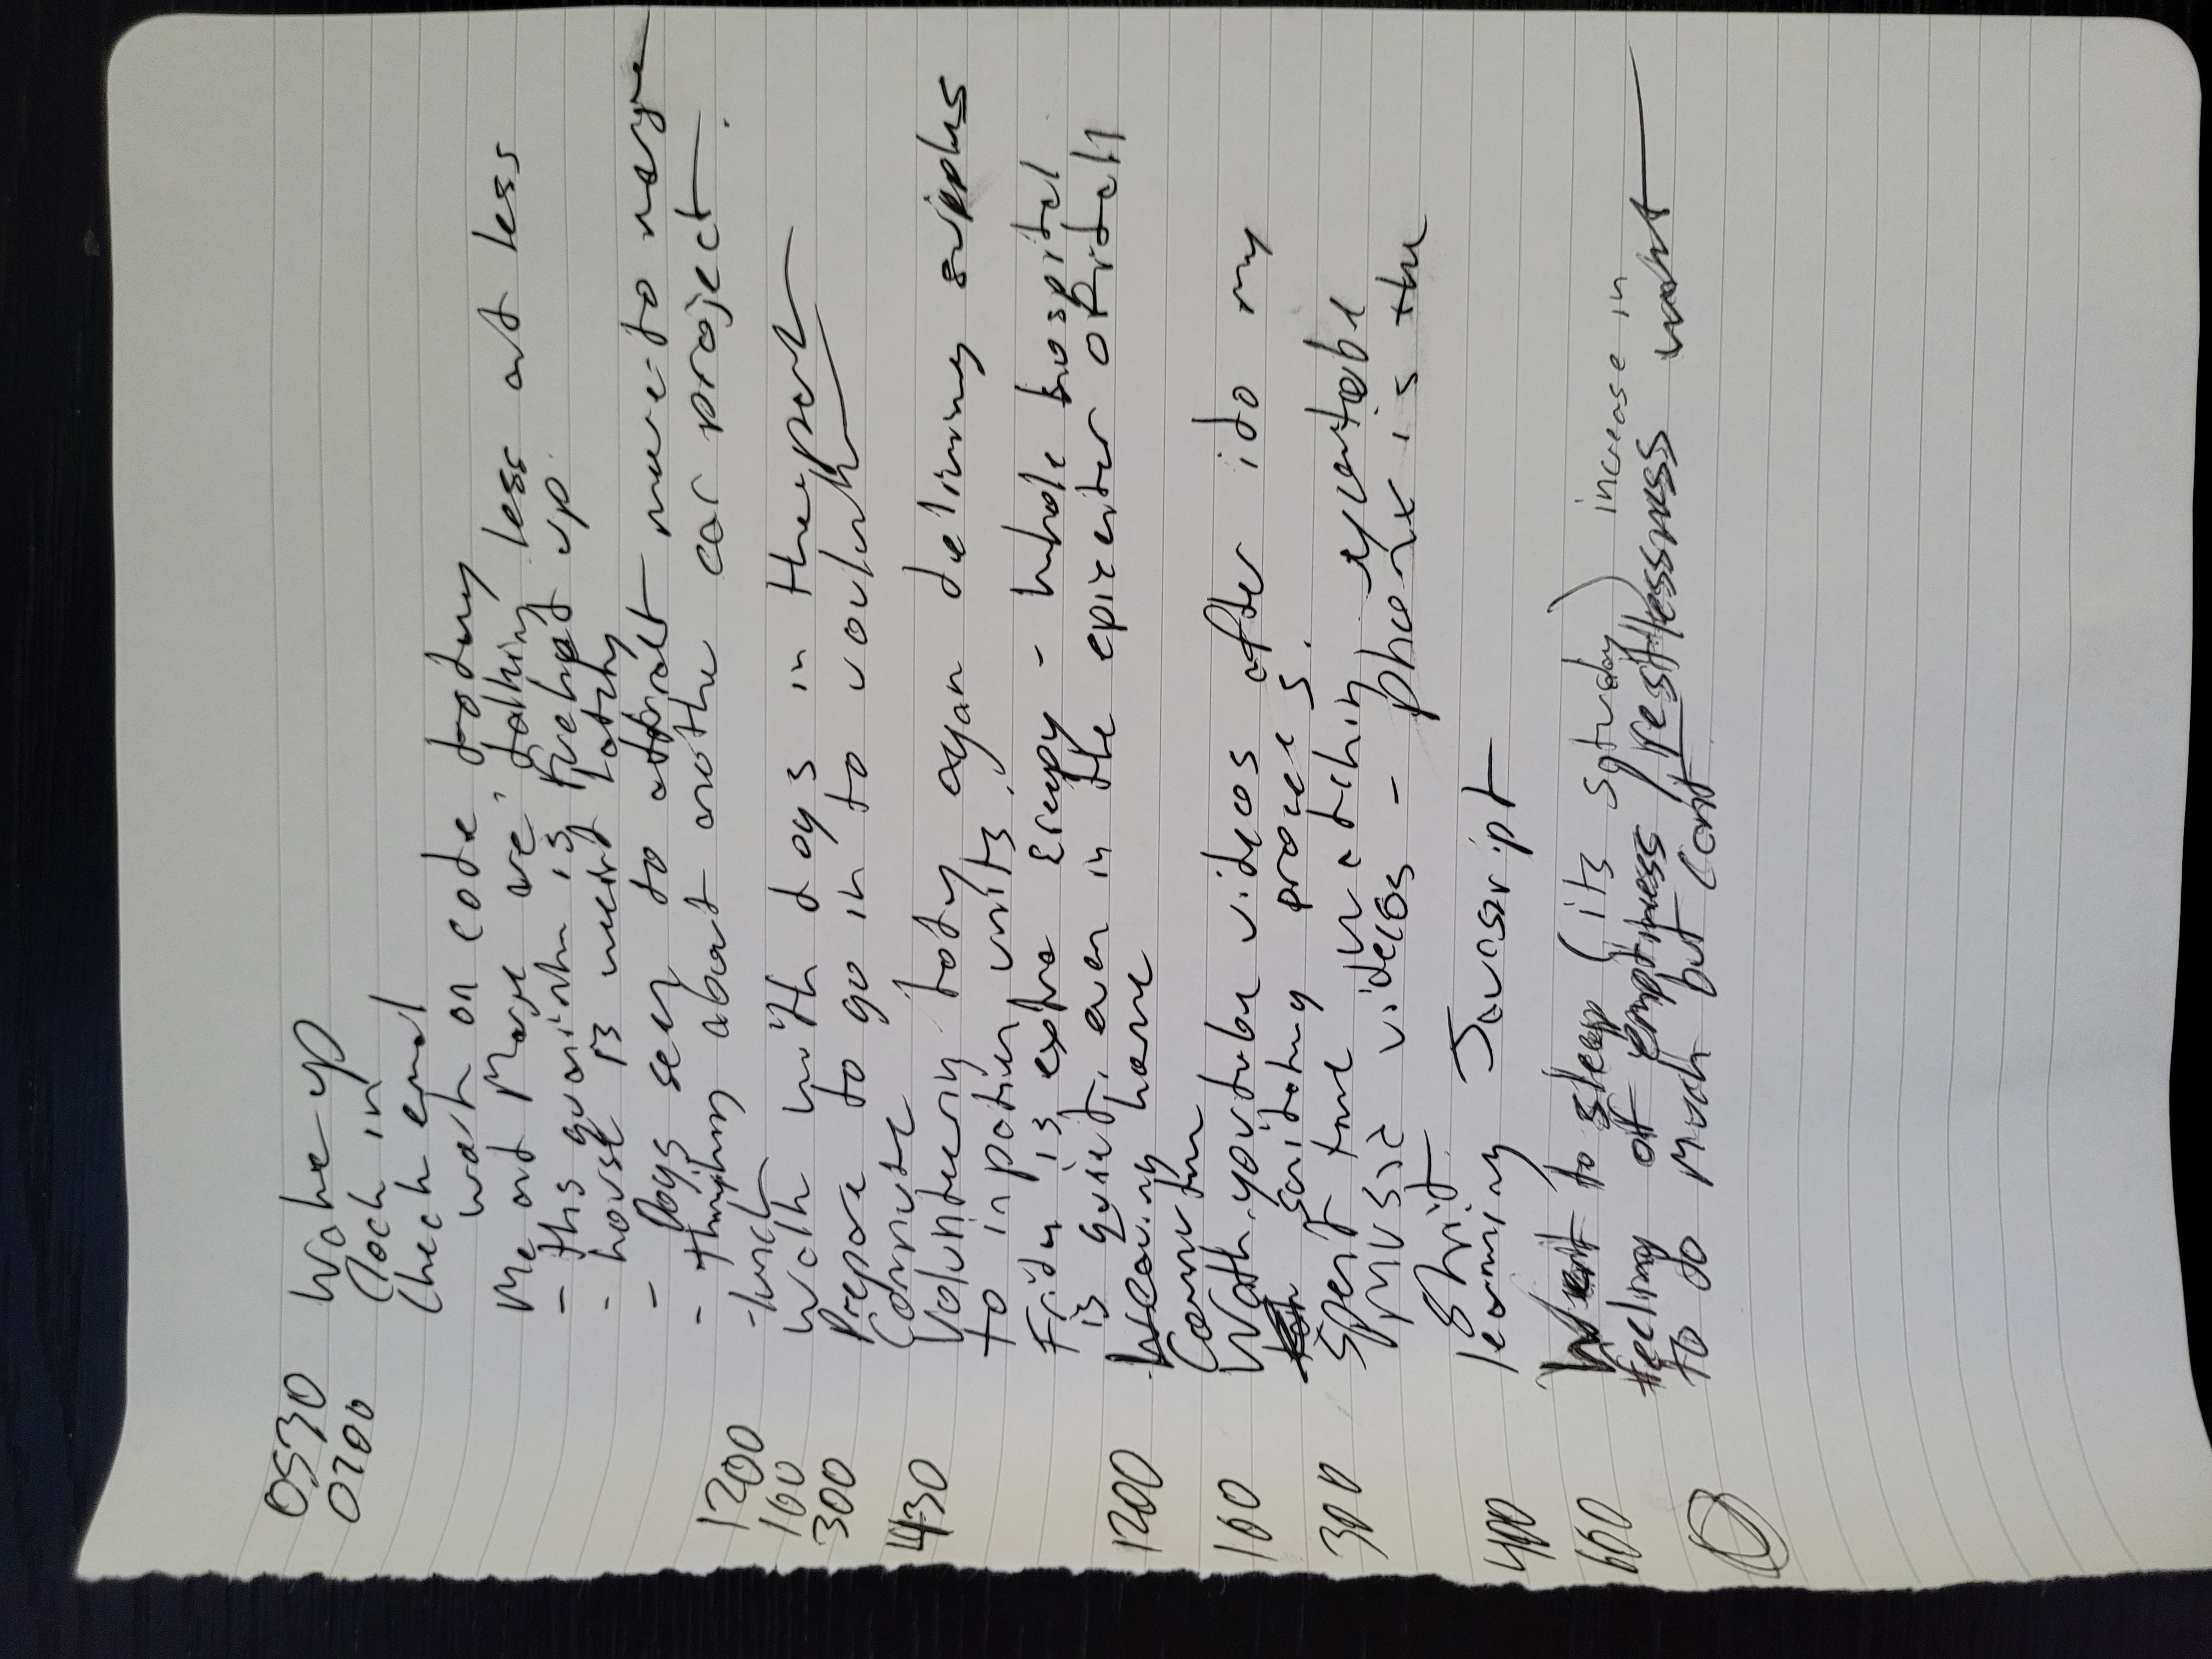 0530 Wake up
0700 Clock in
Check email
work on code today
Me and are talking less and less
- this is fucked up
- house is weird lately
- Dogs seem to more to
- Thinking about another car project.
1200 - lunch
100 Walk with dogs in the park
300 Prepare to go in to
Commute
430 Volunteering today again delivering supplies
to inpatient units.
Friday is extra creepy - whole hospital
is quiet, even in the epicenter of it all
1200 Leaving home
Commute
100 Watch youtube videos after i do my
sanitating process.
300 Spent time watching youtube
music videos - phoenix is the
shit
400 learning Javascript
600 Went to sleep (its saturday) increase in
feeling of emptiness / restlessness want
to do much but cant